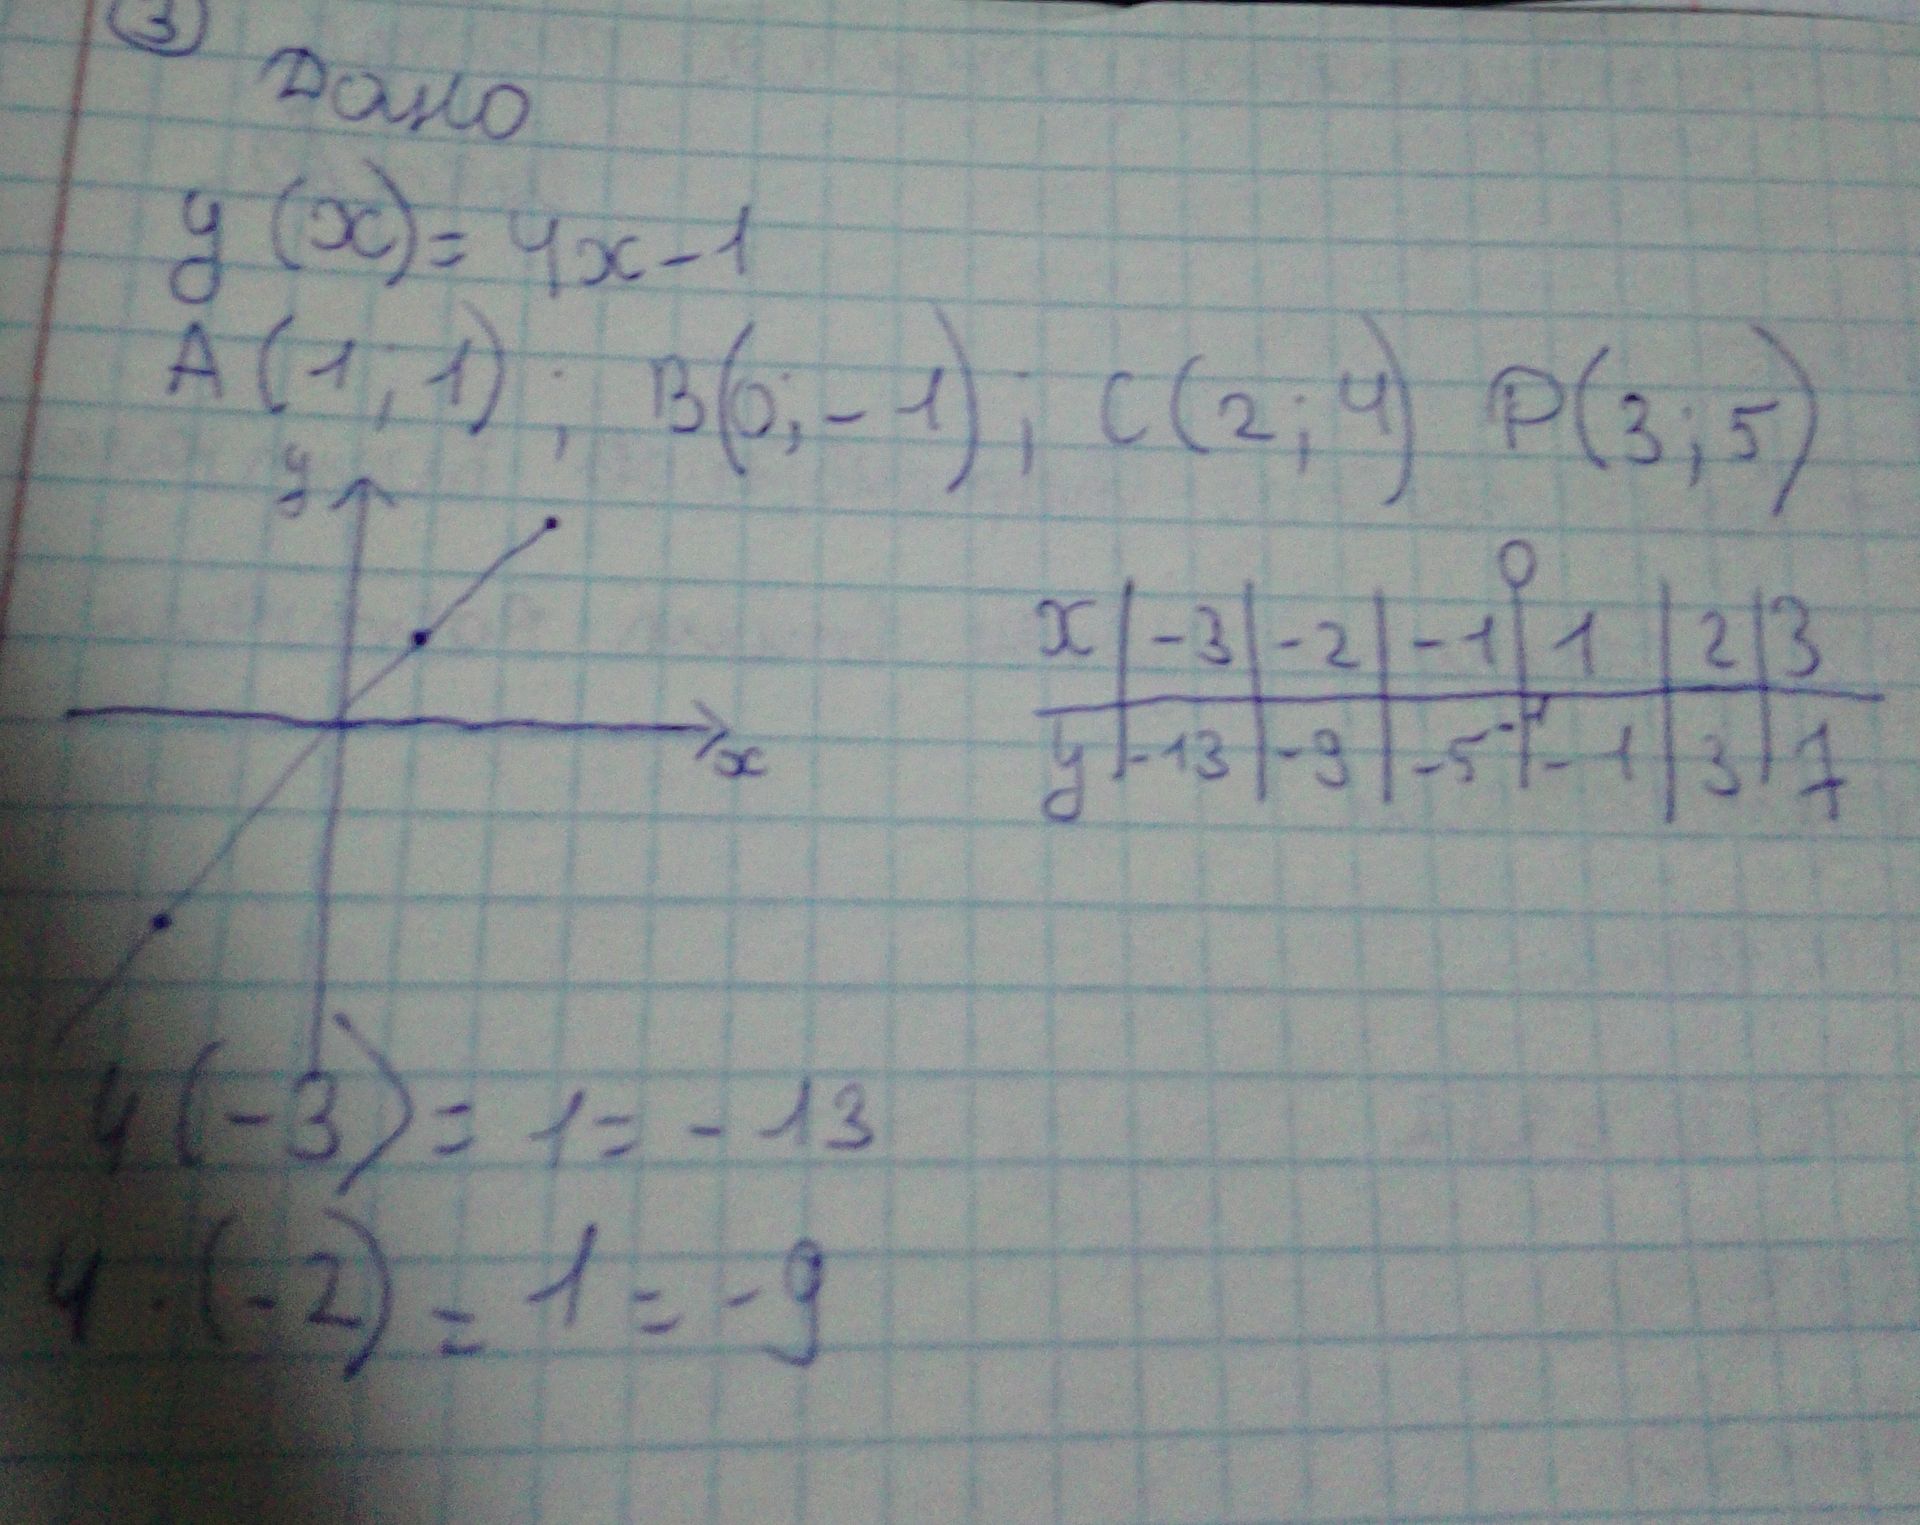 3
Дано
y(x)= 4x-1
A(1;1); B(0;-1); C(2;4) P(3;5)
y
x
0
x | -3 | -2 | -1 | 1 | 2 | 3
y | -13 | -9 | -5 -1 | -1 | 3 | 7
4(-3)= 1= -13
4·(-2)= 1= -9